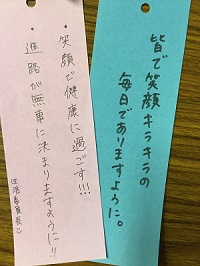 皆で笑顔キラキラの
毎日でありますように。
・笑顔で健康に過ごす!!!
・進路が無事に決まりますように!!
生活委員長